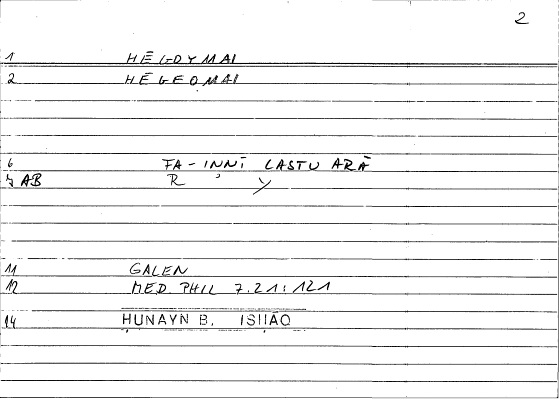 2
1 HĒGOYMAI
2 HĒGEOMAI
6 FA-INNĪ LASTU ARĀ
7 AB R ʾ Y
11 GALEN
12 MED. PHIL 7.21:121
14 ḤUNAYN B. ISḤĀQ